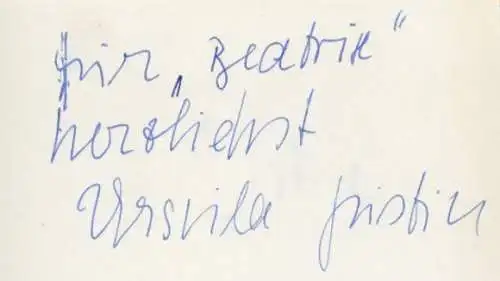 für „Beatrix“
herzlichst
Ursula Justin